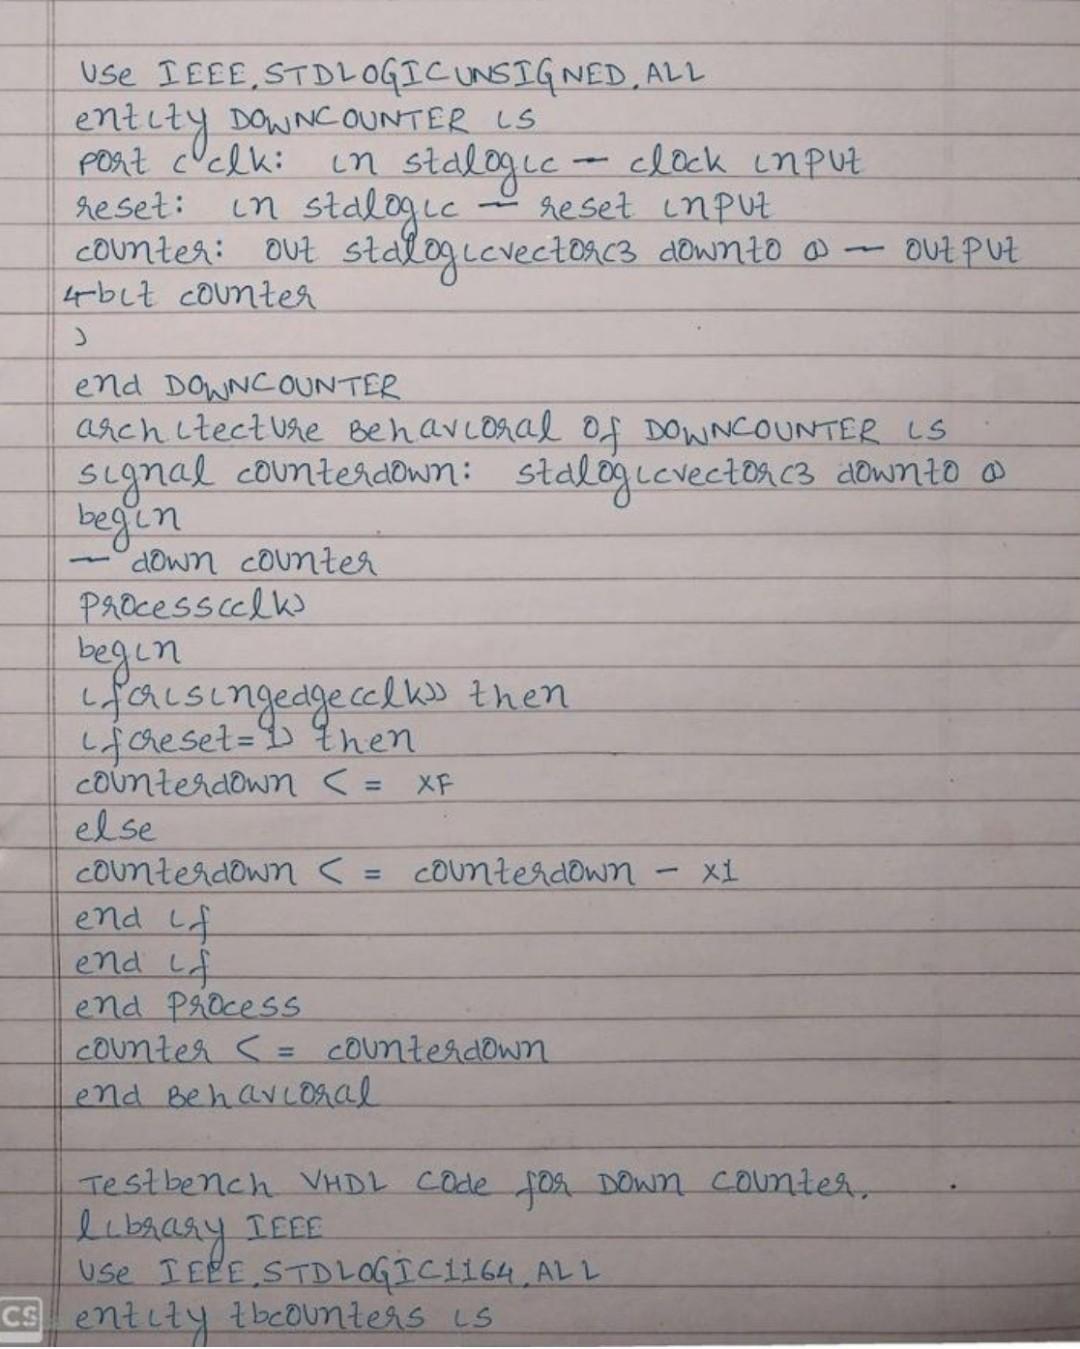 Use IEEE.STDLOGICUNSIGNED.ALL
entity DOWNCOUNTER is
port ( clk: in stdlogic — clock input
reset: in stdlogic — reset input
counter: out stdlogicvector(3 downto 0) — output
4-bit counter
)
end DOWNCOUNTER
architecture Behavioral of DOWNCOUNTER is
signal counterdown: stdlogicvector(3 downto 0)
begin
— down counter
process(clk)
begin
if(risingedge(clk)) then
if(reset=1) then
counterdown < = xF
else
counterdown < = counterdown - x1
end if
end if
end process
counter < = counterdown
end Behavioral
Testbench VHDL code for Down counter.
library IEEE
Use IEEE.STDLOGIC1164.ALL
entity tbcounters is
CS